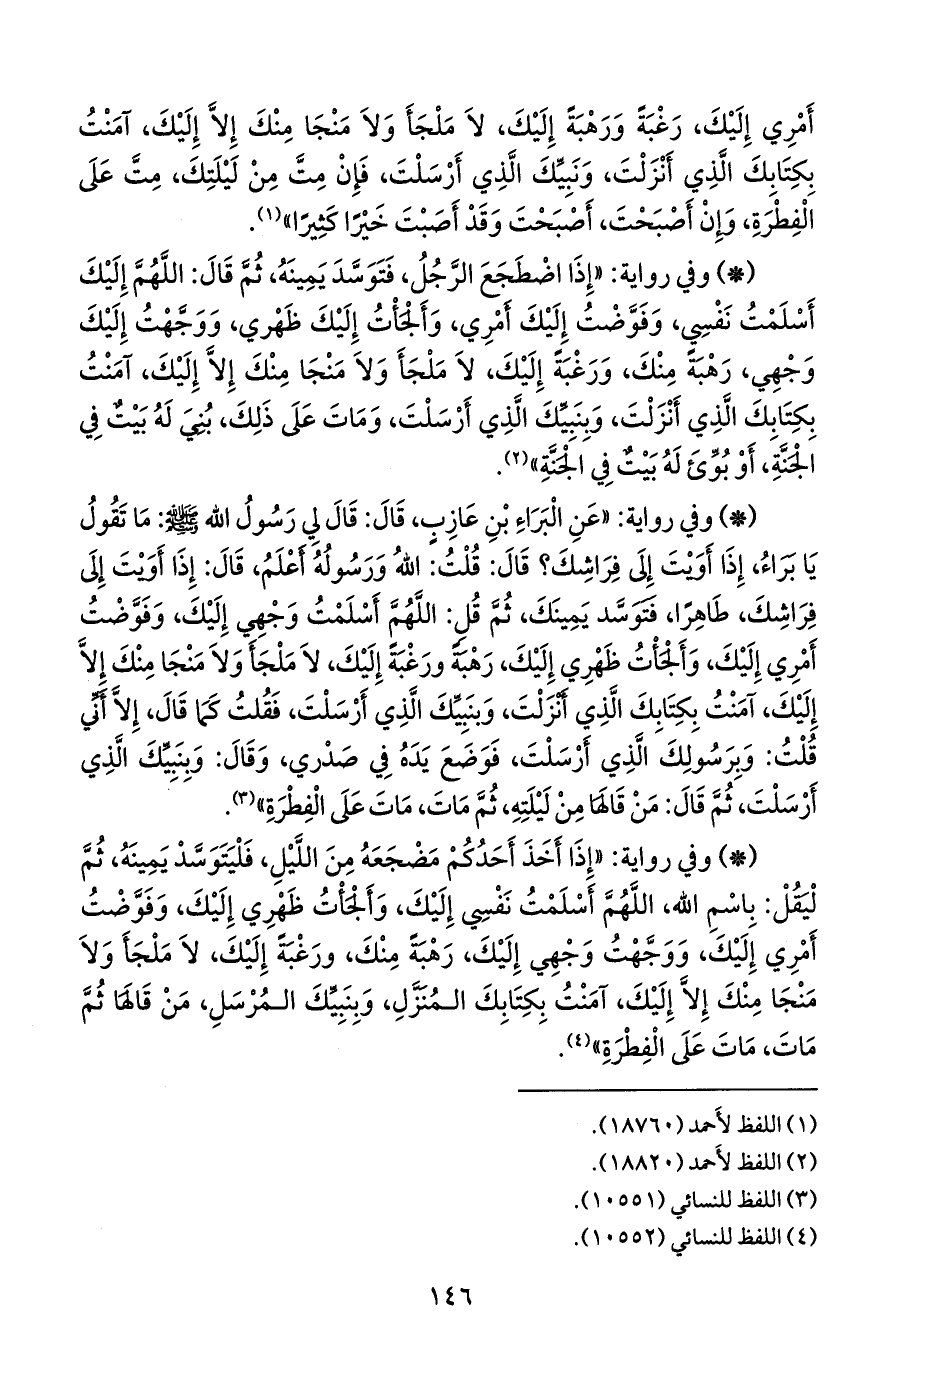 أَمْرِي إِلَيْكَ، رَغْبَةً وَرَهْبَةً إِلَيْكَ، لاَ مَلْجَأَ وَلاَ مَنْجَا مِنْكَ إِلاَّ إِلَيْكَ، آمَنْتُ
بِكِتَابِكَ الَّذِي أَنْزَلْتَ، وَنَبِيِّكَ الَّذِي أَرْسَلْتَ، فَإِنْ مِتَّ مِنْ لَيْلَتِكَ، مِتَّ عَلَى
الْفِطْرَةِ، وَإِنْ أَصْبَحْتَ، أَصْبَحْتَ وَقَدْ أَصَبْتَ خَيْرًا كَثِيرًا»(١).
(*) وفي رواية: «إِذَا اضْطَجَعَ الرَّجُلُ، فَتَوَسَّدَ يَمِينَهُ، ثُمَّ قَالَ: اللَّهُمَّ إِلَيْكَ
أَسْلَمْتُ نَفْسِي، وَفَوَّضْتُ إِلَيْكَ أَمْرِي، وَأَلْجَأْتُ إِلَيْكَ ظَهْرِي، وَوَجَّهْتُ إِلَيْكَ
وَجْهِي، رَهْبَةً مِنْكَ، وَرَغْبَةً إِلَيْكَ، لاَ مَلْجَأَ وَلاَ مَنْجَا مِنْكَ إِلاَّ إِلَيْكَ، آمَنْتُ
بِكِتَابِكَ الَّذِي أَنْزَلْتَ، وَبِنَبِيِّكَ الَّذِي أَرْسَلْتَ، وَمَاتَ عَلَى ذَلِكَ، بُنِيَ لَهُ بَيْتٌ فِي
الْجَنَّةِ، أَوْ بُوِّئَ لَهُ بَيْتٌ فِي الْجَنَّةِ»(٢).
(*) وفي رواية: «عَنِ الْبَرَاءِ بْنِ عَازِبٍ، قَالَ: قَالَ لِي رَسُولُ الله ﷺ: مَا تَقُولُ
يَا بَرَاءُ، إِذَا أَوَيْتَ إِلَى فِرَاشِكَ؟ قَالَ: قُلْتُ: اللهُ وَرَسُولُهُ أَعْلَمُ، قَالَ: إِذَا أَوَيْتَ إِلَى
فِرَاشِكَ، طَاهِرًا، فَتَوَسَّد يَمِينَكَ، ثُمَّ قُلِ: اللَّهُمَّ أَسْلَمْتُ وَجْهِي إِلَيْكَ، وَفَوَّضْتُ
أَمْرِي إِلَيْكَ، وَأَلْجَأْتُ ظَهْرِي إِلَيْكَ، رَهْبَةً ورَغْبَةً إِلَيْكَ، لاَ مَلْجَأَ وَلاَ مَنْجَا مِنْكَ إِلاَّ
إِلَيْكَ، آمَنْتُ بِكِتَابِكَ الَّذِي أَنْزَلْتَ، وَبِنَبِيِّكَ الَّذِي أَرْسَلْتَ، فَقُلتُ كَمَا قَالَ، إِلاَّ أَنِّي
قُلْتُ: وَبِرَسُولِكَ الَّذِي أَرْسَلْتَ، فَوَضَعَ يَدَهُ فِي صَدْرِي، وَقَالَ: وَبِنَبِيِّكَ الَّذِي
أَرْسَلْتَ، ثُمَّ قَالَ: مَنْ قَالَهَا مِنْ لَيْلَتِهِ، ثُمَّ مَاتَ، مَاتَ عَلَى الْفِطْرَةِ»(٣).
(*) وفي رواية: «إِذَا أَخَذَ أَحَدُكُمْ مَضْجَعَهُ مِنَ اللَّيْلِ، فَلْيَتَوَسَّدْ يَمِينَهُ، ثُمَّ
لْيَقُلْ: بِاسْمِ الله، اللَّهُمَّ أَسْلَمْتُ نَفْسِي إِلَيْكَ، وَأَلْجَأْتُ ظَهْرِي إِلَيْكَ، وَفَوَّضْتُ
أَمْرِي إِلَيْكَ، وَوَجَّهْتُ وَجْهِي إِلَيْكَ، رَهْبَةً مِنْكَ، ورَغْبَةً إِلَيْكَ، لاَ مَلْجَأَ وَلاَ
مَنْجَا مِنْكَ إِلاَّ إِلَيْكَ، آمَنْتُ بِكِتَابِكَ الْـمُنَزَّلِ، وَبِنَبِيِّكَ الْـمُرْسَلِ، مَنْ قَالَهَا ثُمَّ
مَاتَ، مَاتَ عَلَى الْفِطْرَةِ»(٤).
(١) اللفظ لأَحمد (١٨٧٦٠).
(٢) اللفظ لأَحمد (١٨٨٢٠).
(٣) اللفظ للنسائي (١٠٥٥١).
(٤) اللفظ للنسائي (١٠٥٥٢).
١٤٦